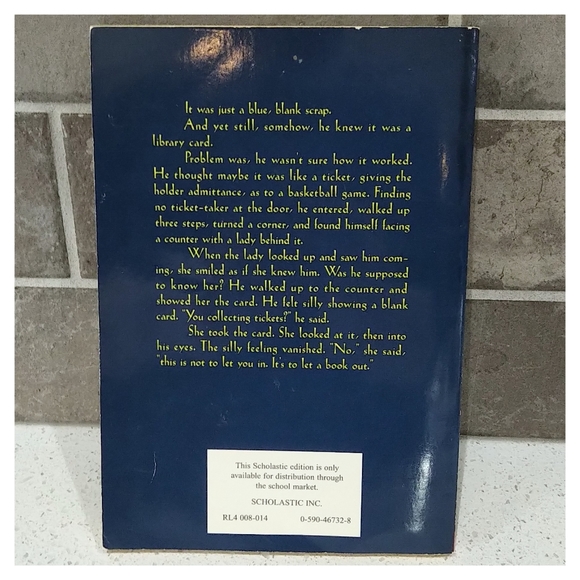 It was just a blue, blank scrap.
And yet still, somehow, he knew it was a
library card.
Problem was, he wasn't sure how it worked.
He thought maybe it was like a ticket, giving the
holder admittance, as to a basketball game. Finding
no ticket-taker at the door, he entered, walked up
three steps, turned a corner, and found himself facing
a counter with a lady behind it.
When the lady looked up and saw him com-
ing, she smiled as if she knew him. Was he supposed
to know her? He walked up to the counter and
showed her the card. He felt silly showing a blank
card. "You collecting tickets?" he said.
She took the card. She looked at it, then into
his eyes. The silly feeling vanished. "No," she said,
"this is not to let you in. It's to let a book out."
This Scholastic edition is only
available for distribution through
the school market.
SCHOLASTIC INC.
RL4 008-014 0-590-46732-8